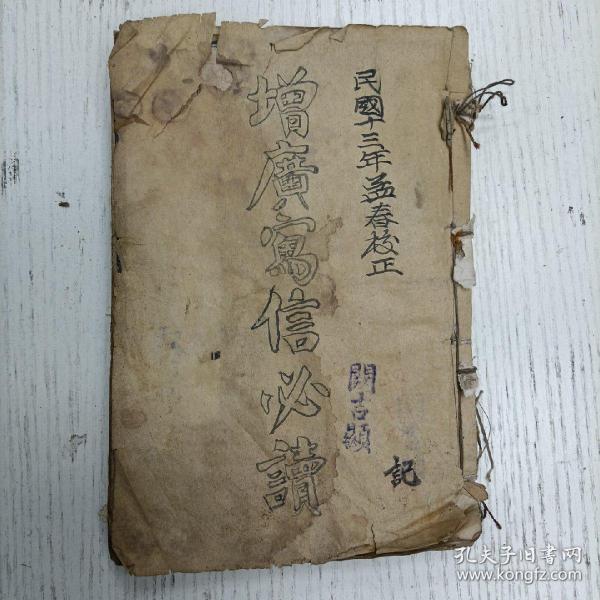 民國十三年孟春校正
增廣寫信必讀
閆吉顯
記
孔夫子旧书网
www.kongfz.com